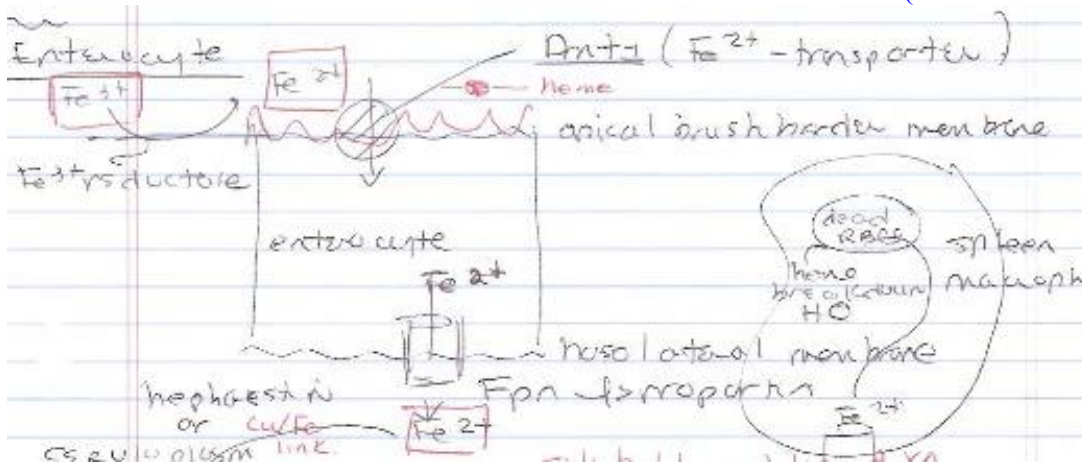 Enterocyte
Dmt1 (Fe2+-transporter)
Fe3+
Fe2+
heme
apical brush border membrane
Fe3+ reductase
enterocyte
Fe2+
dead
RBCs
heme
breakdown
HO
spleen
macroph
basolateral membrane
Fpn ferroportin
hephaestin
or
Cu/Fe
link.
Fe2+
Fe2+